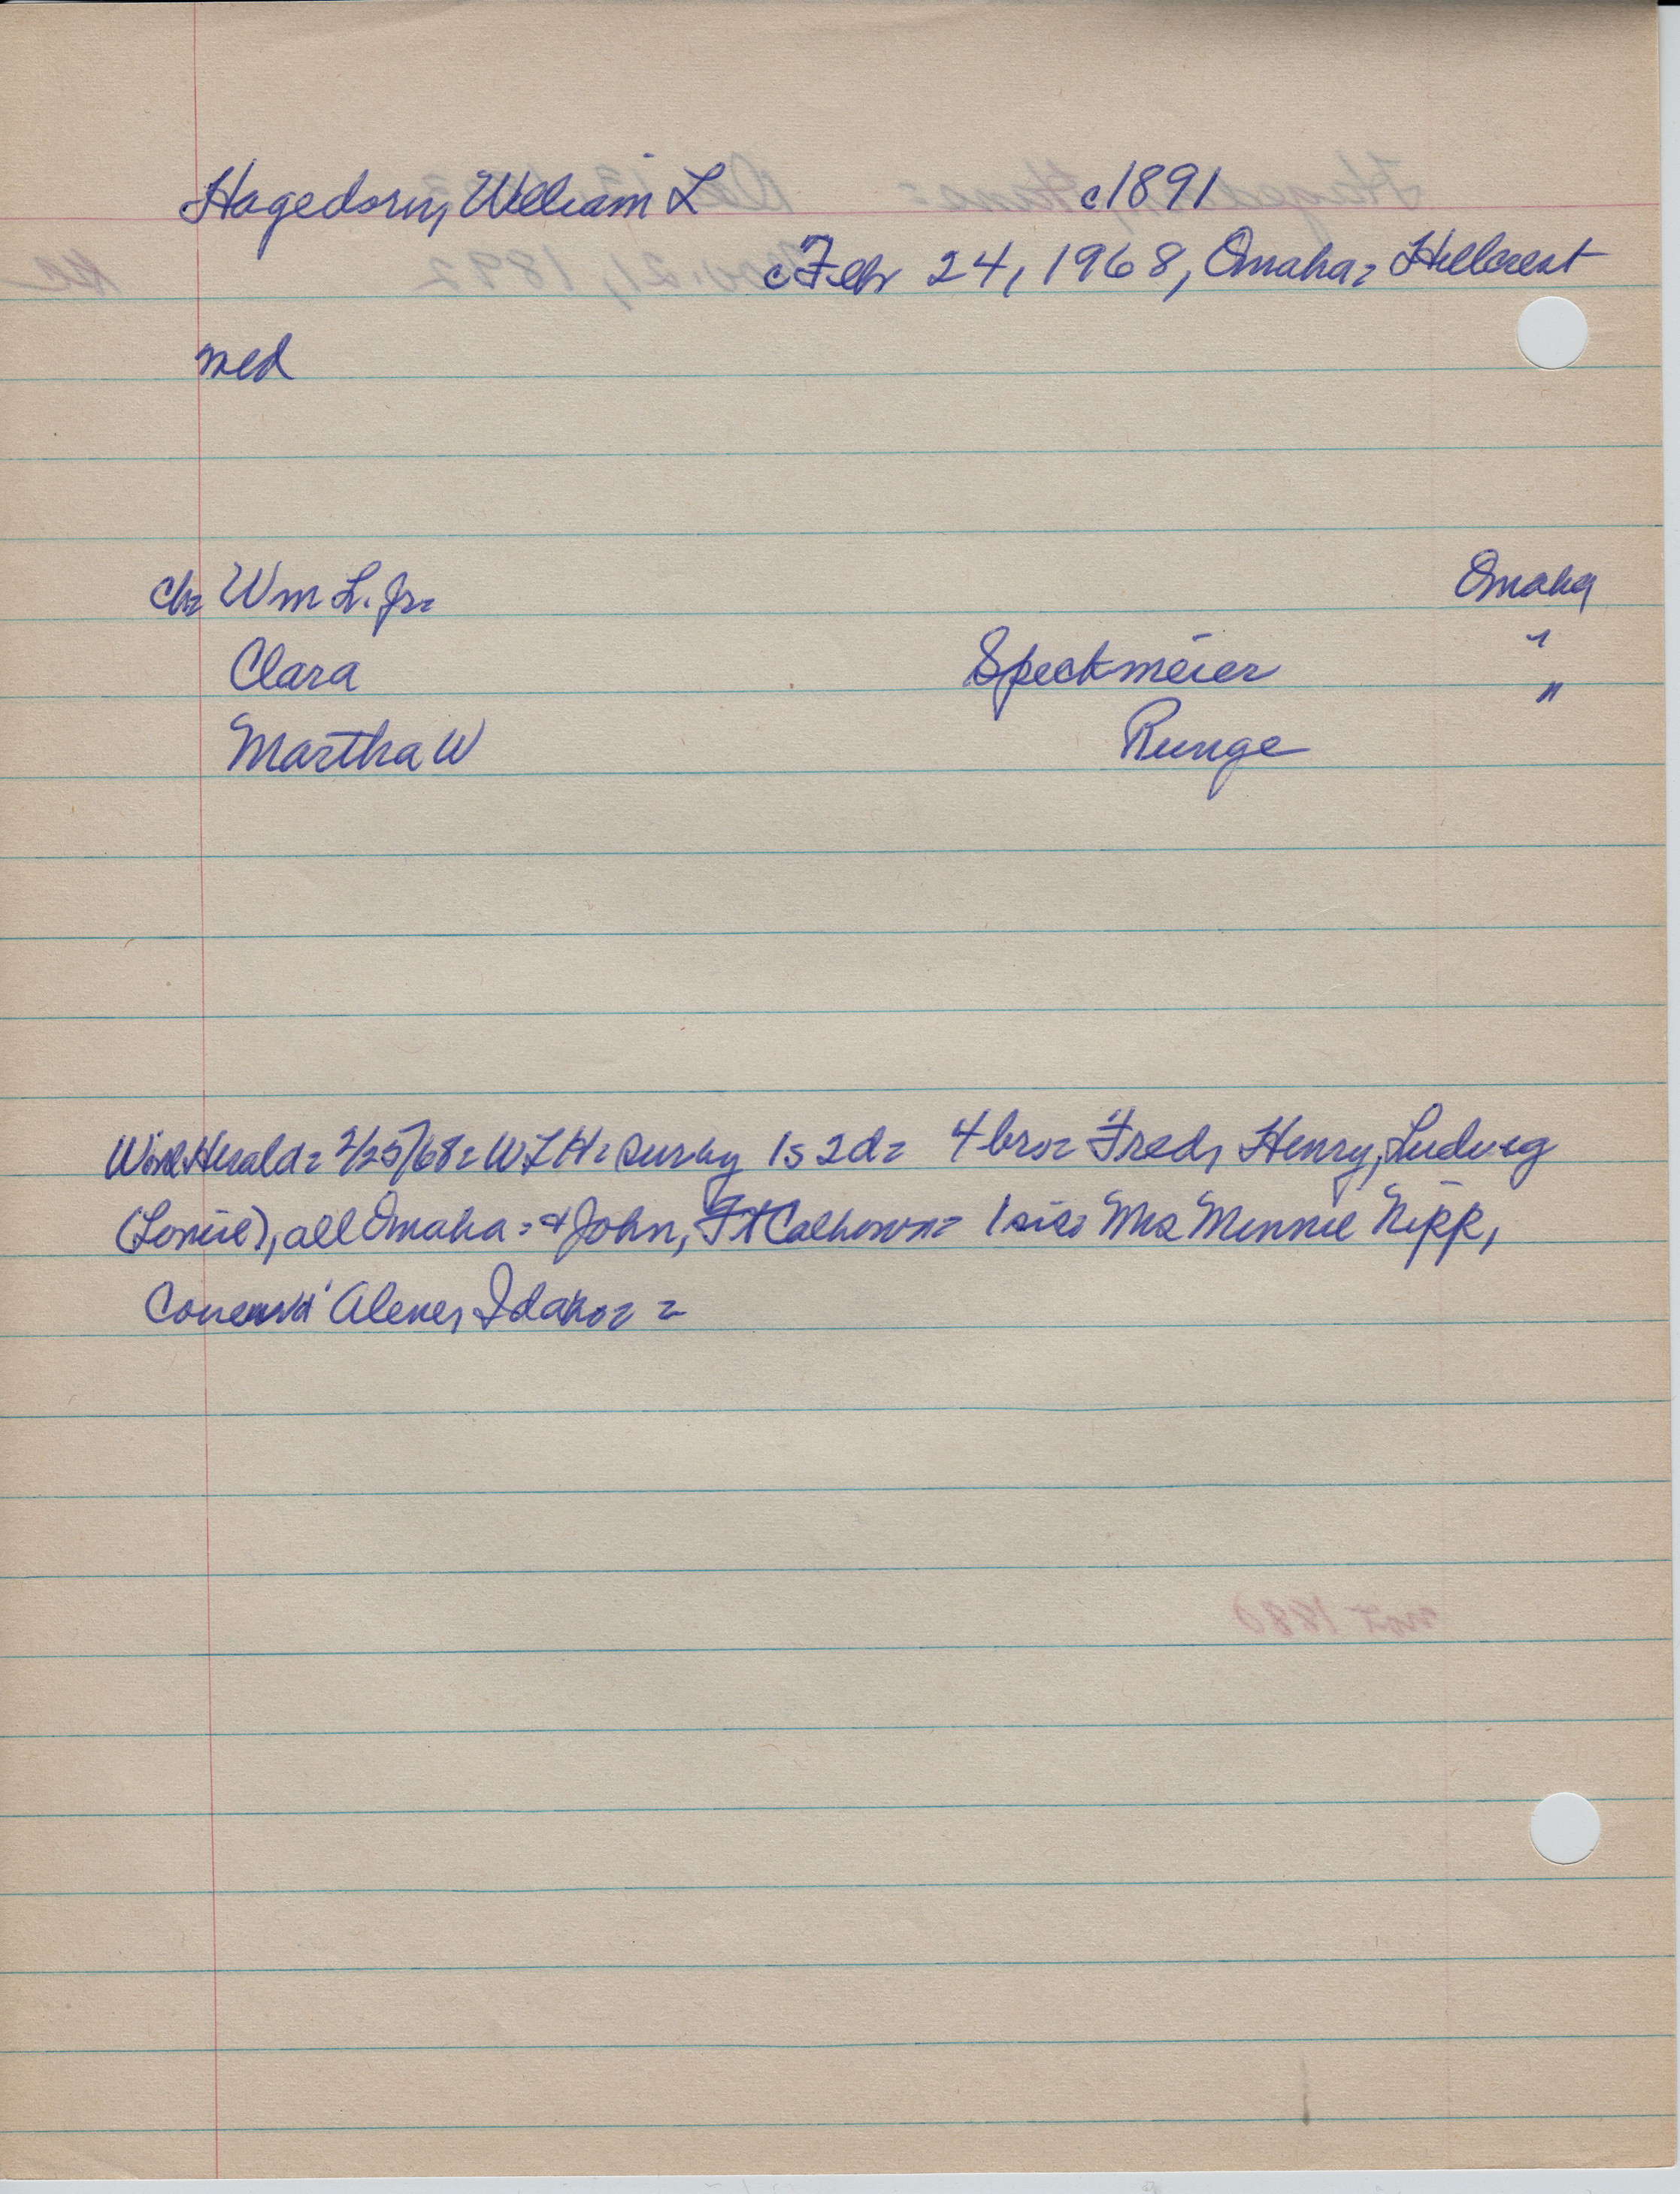 Hagedorn, William L c1891
c Febr 24, 1968, Omaha, Hillcrest
med
ch: Wm L. Jr. Omaha
Clara Speckmeier "
Martha W Runge "
World Herald: 2/25/68: W L H: surv by 1s 2d: 4 bro: Fred, Henry, Ludwig
(Louie), all Omaha: & John, Ft Calhoun: 1 sis: Mrs Minnie Nipp,
d' Alene, Idaho: